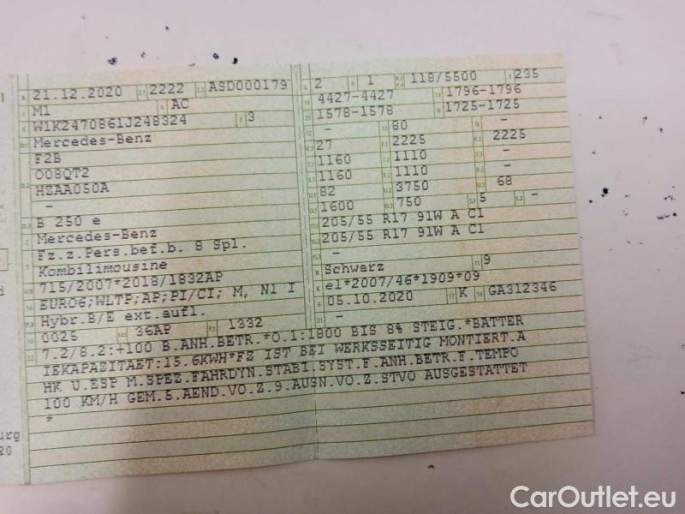 21.12.2020 2222 ASD000179
M1 AC
W1K2470861J248324 3
Mercedes-Benz
F2B
O08QT2
HZAA050A
-
B 250 e
Mercedes-Benz
Fz.z.Pers.bef.b. 8 Spl.
Kombilimousine
715/2007*2018/1832AP
EURO6;WLTP;AP;PI/CI; M, N1 I
Hybr.B/E ext.aufl.
0025 36AP 1332
2 1 118/5500 235
4427-4427 1796-1796
1578-1578 1725-1725
- 80 -
27 2225 2225
1160 1110 -
1160 1110 -
82 3750 68
1600 750 5 -
205/55 R17 91W A C1
205/55 R17 91W A C1
-
Schwarz 9
e1*2007/46*1909*09
05.10.2020 K GA312346
-
7.2/8.2:+100 B.ANH.BETR.*O.1:1800 BIS 8% STEIG.*BATTER
IEKAPAZITAET:15.6KWH*FZ IST BEI WERKSSEITIG MONTIERT.A
HK U.ESP M.SPEZ.FAHRDYN.STABI.SYST.F.ANH.BETR.F.TEMPO
100 KM/H GEM.5.AEND.VO.Z.9.AUSN.VO.Z.STVO AUSGESTATTET
*
urg
20
CarOutlet.eu